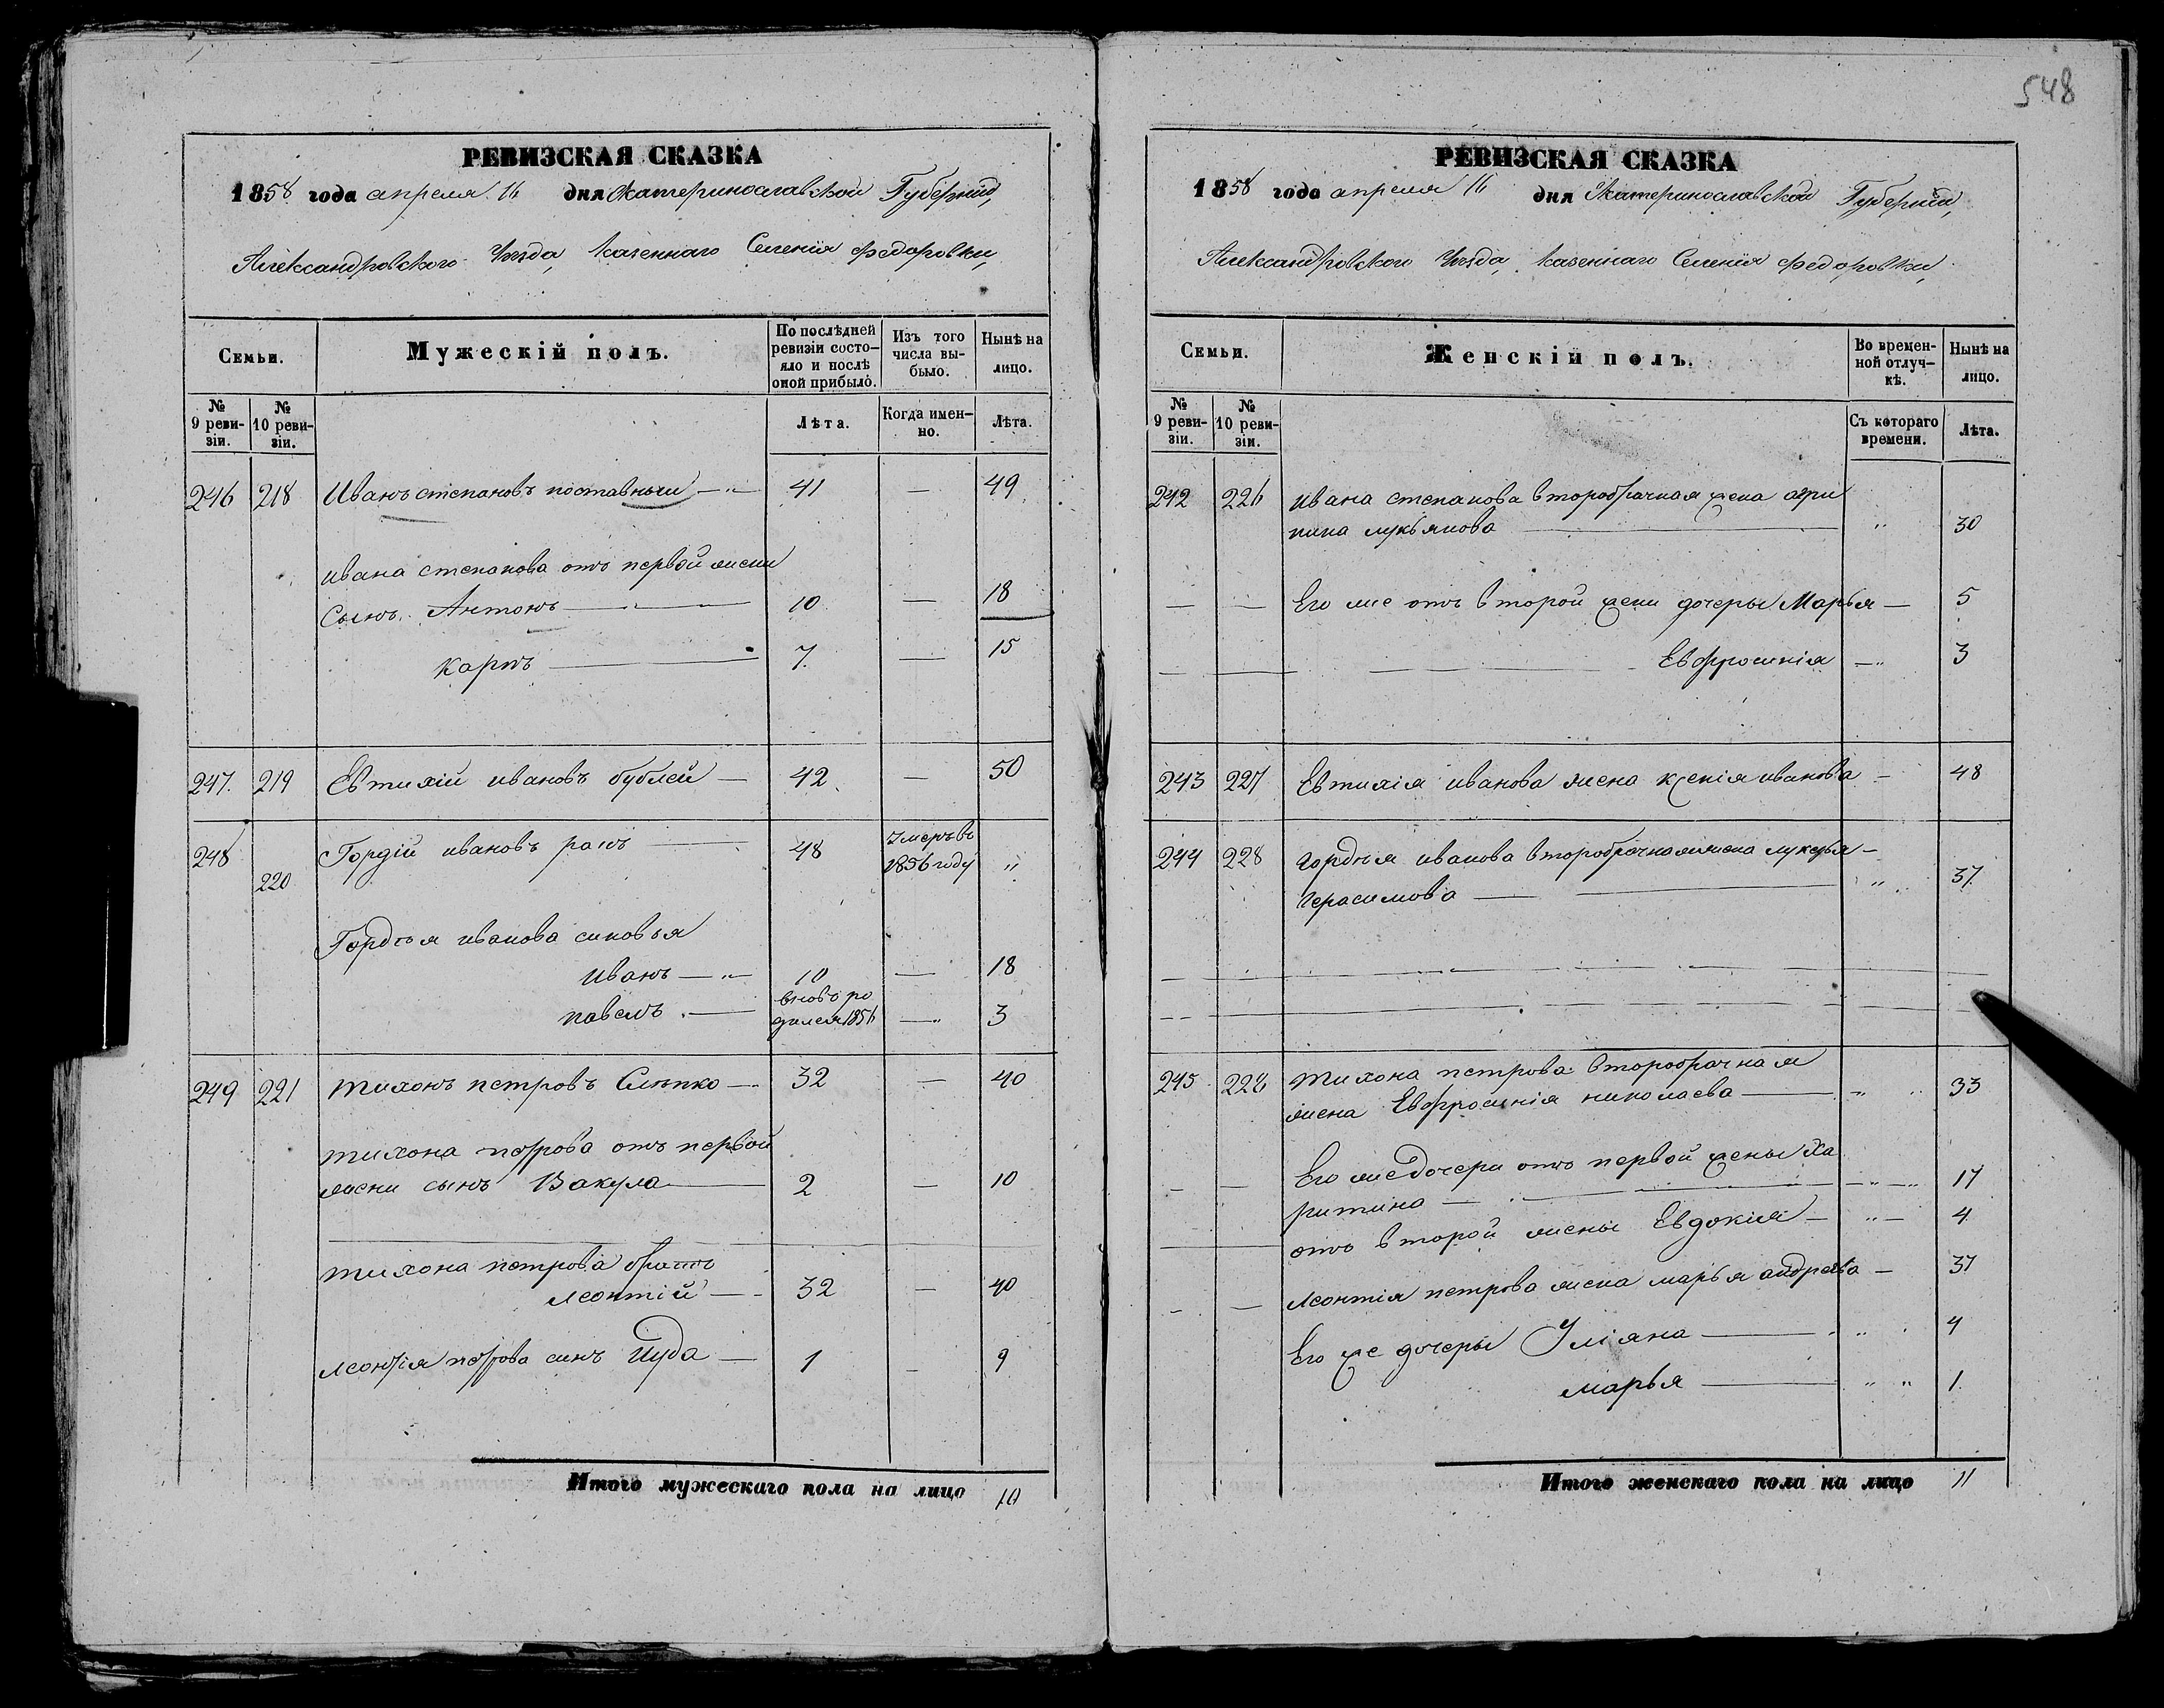 548
РЕВИЗСКАЯ СКАЗКА
1858 года апреля 16 дня Екатеринославской Губерніи,
Александровского Уезда, казеннаго Селенія Федоровки,
Семьи.
Мужескій полъ.
По послѣдней ревизіи состояло и послѣ оной прибыло.
Изъ того числа выбыло.
Нынѣ на лицо.
№ 9 ревизіи.
№ 10 ревизіи.
Лѣта.
Когда именно.
Лѣта.
246 218 Иванъ степановъ поставный — 41 — 49
ивана степанова отъ первой жени
Сынъ Антонъ — 10 — 18
карпъ — 7 — 15
247. 219 Евтихій ивановъ бублей — 42 — 50
248 220 Гордій ивановъ ракъ — 48 Умеръ въ 1856 году "
Гордѣя иванова синовья
иванъ — 10 — 18
павелъ — вновь родился 1856 — 3
249 221 тихонъ петровъ Слѣпко — 32 — 40
тихона петрова отъ первой
жени сынъ Вакула — 2 — 10
тихона петрова братъ
леонтій — 32 — 40
леонтія петрова синъ Иуда — 1 — 9
Итого мужескаго пола на лицо 10
РЕВИЗСКАЯ СКАЗКА
1858 года апреля 16 дня Екатеринославской Губерніи,
Александровского Уезда, казеннаго Селенія Федоровки,
Семьи.
Женскій полъ.
Во временной отлучкѣ.
Нынѣ на лицо.
№ 9 ревизіи.
№ 10 ревизіи.
Съ котораго времени.
Лѣта.
242 226 ивана степанова второбрачная жена агри
пина лукьянова — " 30
— — Его же отъ второй жени дочеры Марья — 5
— — Евфросинія — " 3
243 227 Евтихія иванова жена ксенія иванова — 48
244 228 гордѣя иванова второбрачная жена лукерья —
герасимова — " 37
245 228 тихона петрова второбрачная
жена Евфросинія николаева — " 33
— — Его же дочери отъ первой жены Ха
ритина — " 17
отъ второй жены Евдокія — " — 4
— — леонтія петрова жена марья андреева — 37
Его же дочеры Уліяна — " 4
марья — " " 1
Итого женскаго пола на лицо 11